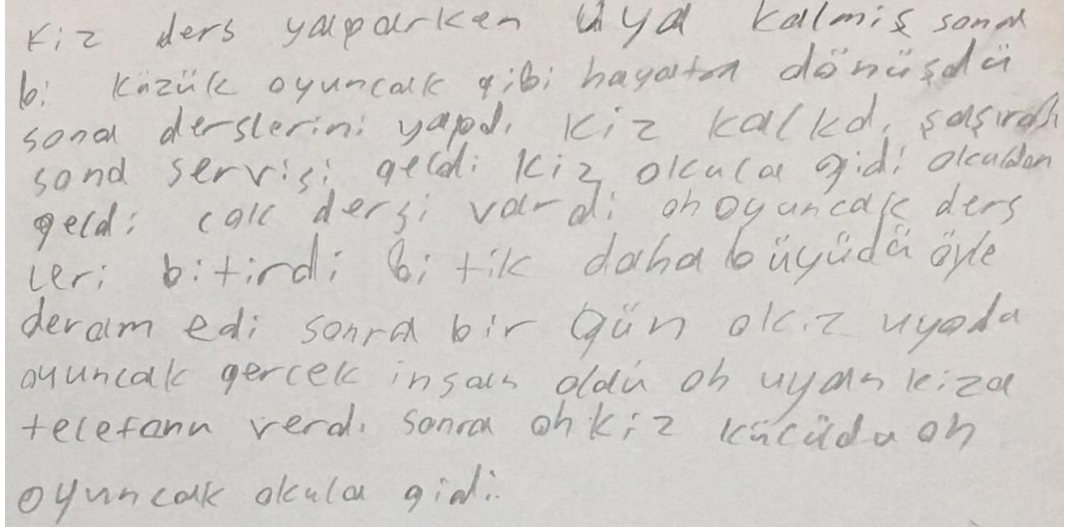 kiz ders yaparken uya kalmiş sona
bi küzük oyuncak gibi hayatta dönüşdü
sona derslerini yapdı kiz kalkdı şaşırdı
sona servisi geldi kiz okula gidi okuldan
geldi cok dersi vardi oh oyuncak ders
leri bitirdi bi tik daha büyüdü öyle
devam edi sonra bir gün okiz uyoda
oyuncak gercek insan oldu oh uyan kiza
telefonu verdi sonra oh kiz kücüda oh
oyuncak okula gidi.